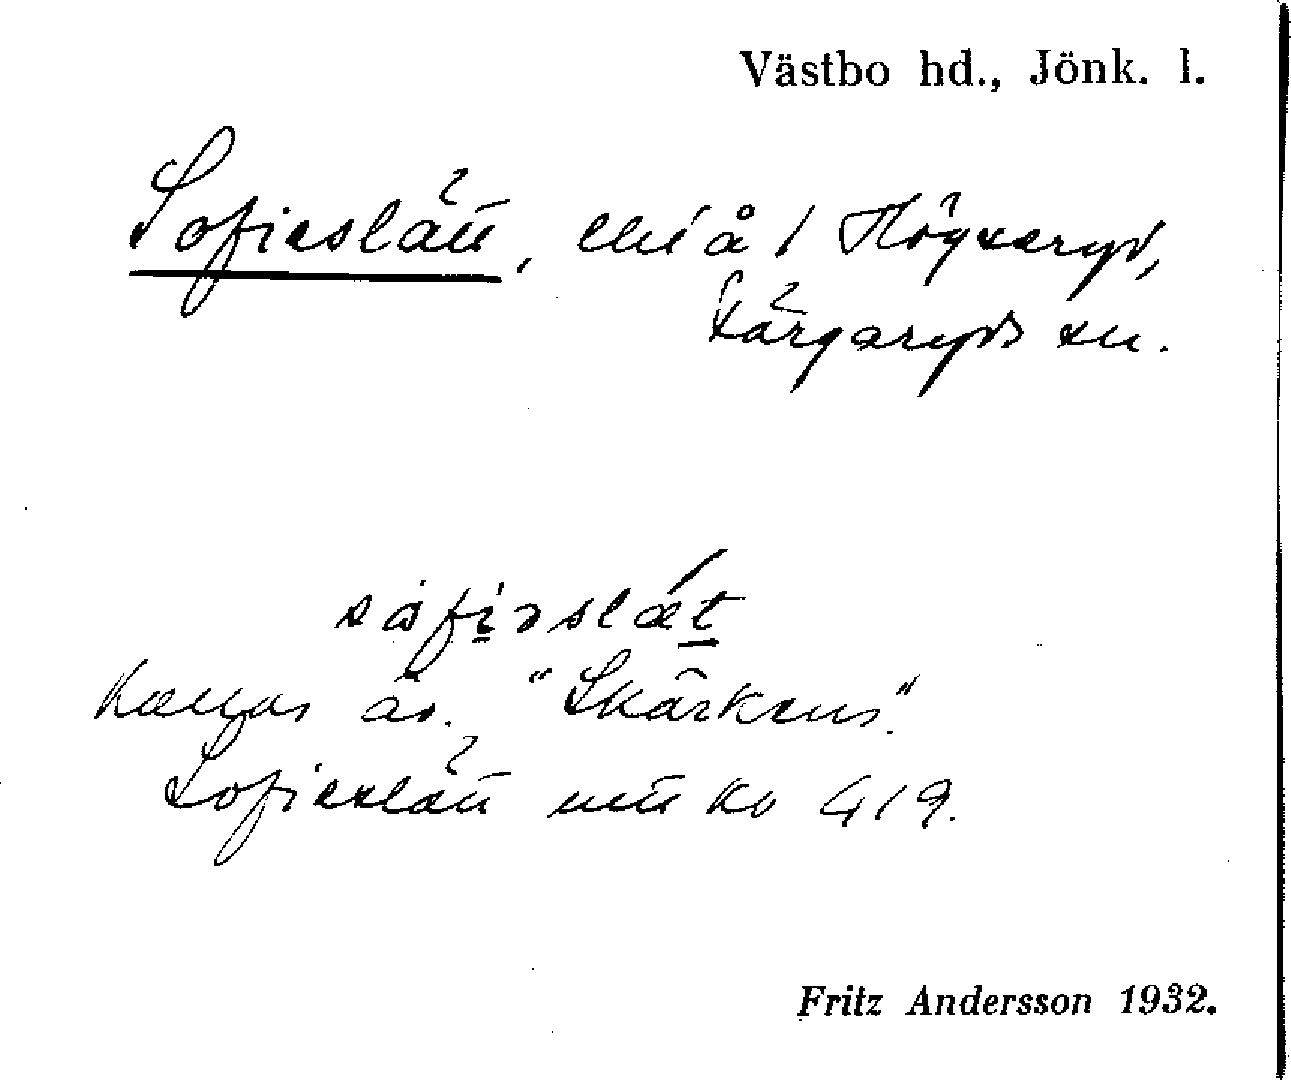 Västbo hd., Jönk. l.
Sofieslätt, ths å 1 Högseryd,
Kärgaryds sn.
såfiəslæt
Kallas äv. "Skärkens".
Sofieslätt utu ko 419.
Fritz Andersson 1932.